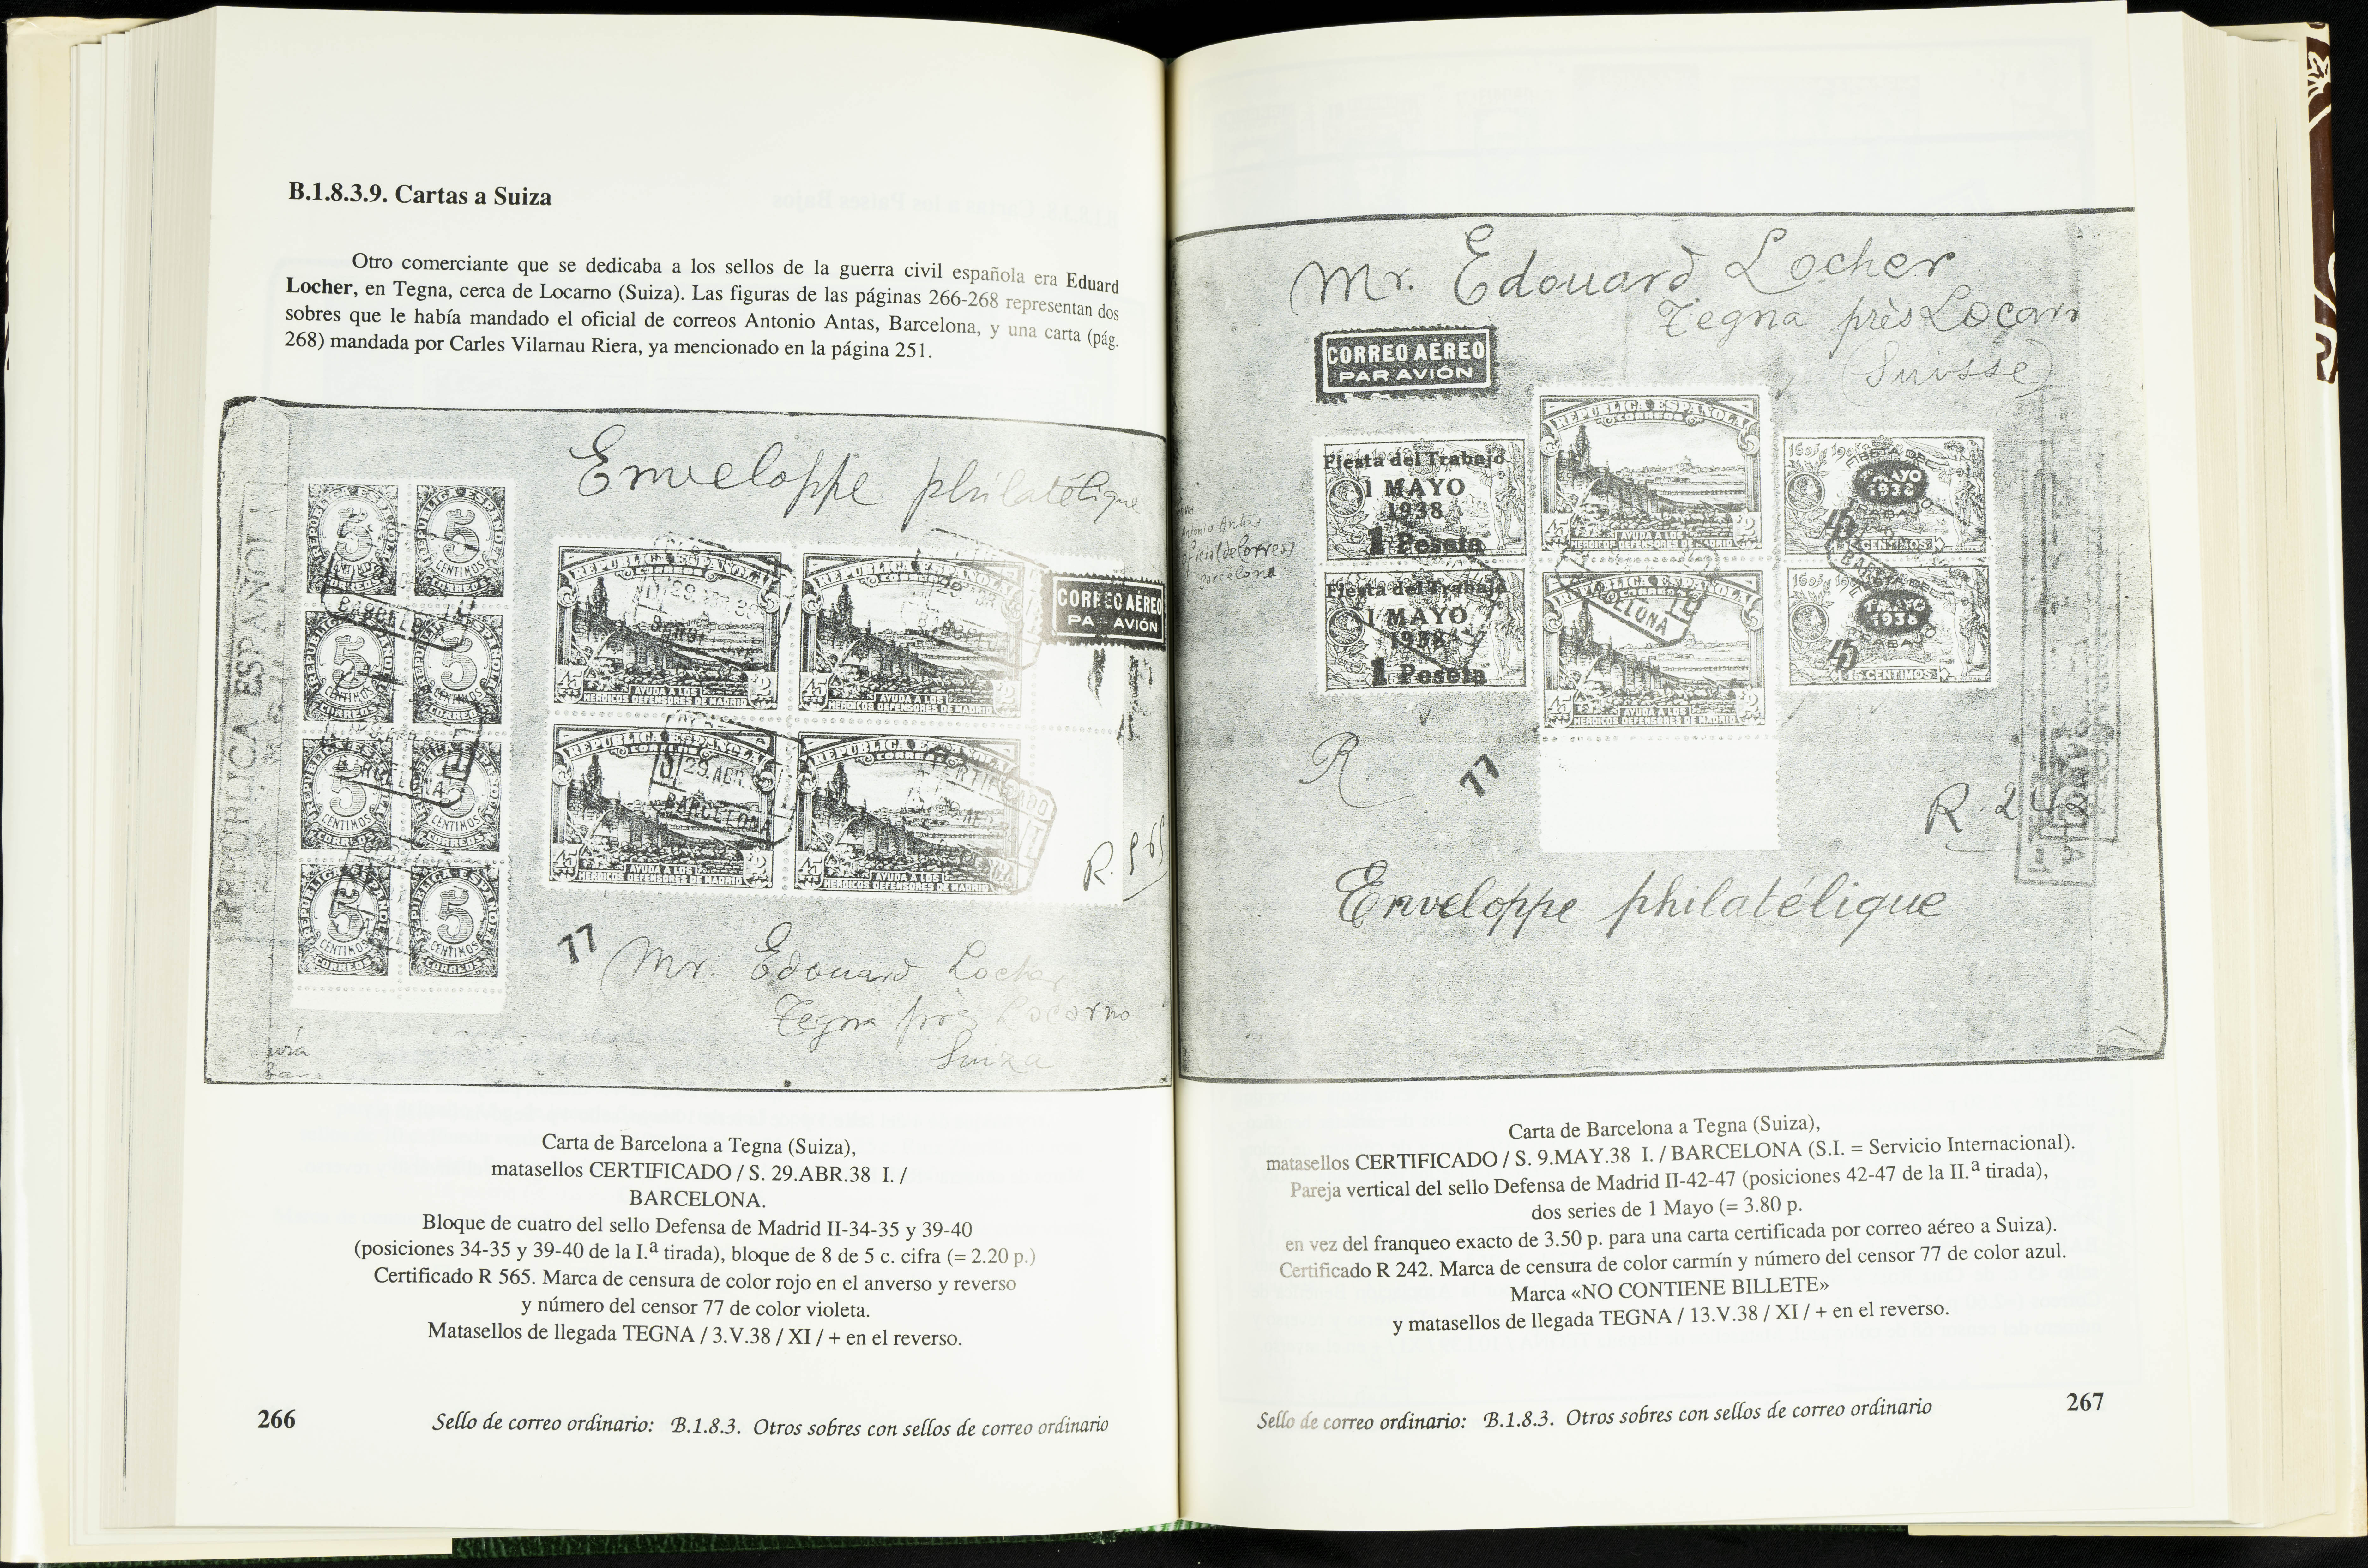 B.1.8.3.9. Cartas a Suiza
Otro comerciante que se dedicaba a los sellos de la guerra civil española era Eduard
Locher, en Tegna, cerca de Locarno (Suiza). Las figuras de las páginas 266-268 representan dos
sobres que le había mandado el oficial de correos Antonio Antas, Barcelona, y una carta (pág.
268) mandada por Carles Vilarnau Riera, ya mencionado en la página 251.
Enveloppe philatélique
REPUBLICA ESPAÑOLA
5
CENTIMOS
CORREOS
REPUBLICA ESPAÑOLA
CORREOS
45 AYUDA A LOS 2
HEROICOS DEFENSORES DE MADRID
CORREO AÉREO
PAR AVIÓN
29 ABR
BARCELONA
CERTIFICADO
R. 565
77
Mr. Edouard Locher
Tegna près Locarno
Suiza
Carta de Barcelona a Tegna (Suiza),
matasellos CERTIFICADO / S. 29.ABR.38 I. /
BARCELONA.
Bloque de cuatro del sello Defensa de Madrid II-34-35 y 39-40
(posiciones 34-35 y 39-40 de la I.ª tirada), bloque de 8 de 5 c. cifra (= 2.20 p.)
Certificado R 565. Marca de censura de color rojo en el anverso y reverso
y número del censor 77 de color violeta.
Matasellos de llegada TEGNA / 3.V.38 / XI / + en el reverso.
266
Sello de correo ordinario: B.1.8.3. Otros sobres con sellos de correo ordinario
Mr. Edouard Locher
Tegna près Locarn
(Suisse)
CORREO AÉREO
PAR AVIÓN
Antonio Antas
oficial de Correos
Barcelona
Fiesta del Trabajo
1 MAYO
1938
1 Peseta
Fiesta del Trabajo
1 MAYO
1938
1 Peseta
REPUBLICA ESPAÑOLA
CORREOS
45 AYUDA A LOS 2
HEROICOS DEFENSORES DE MADRID
REPUBLICA ESPAÑOLA
CORREOS
45 AYUDA A LOS 2
HEROICOS DEFENSORES DE MADRID
FIESTA DEL
1 MAYO
1938
TRABAJO
45
15 CENTIMOS
1 MAYO
1938
45
15 CENTIMOS
R
77
R. 242
Enveloppe philatélique
Carta de Barcelona a Tegna (Suiza),
matasellos CERTIFICADO / S. 9.MAY.38 I. / BARCELONA (S.I. = Servicio Internacional).
Pareja vertical del sello Defensa de Madrid II-42-47 (posiciones 42-47 de la II.ª tirada),
dos series de 1 Mayo (= 3.80 p.
en vez del franqueo exacto de 3.50 p. para una carta certificada por correo aéreo a Suiza).
Certificado R 242. Marca de censura de color carmín y número del censor 77 de color azul.
Marca «NO CONTIENE BILLETE»
y matasellos de llegada TEGNA / 13.V.38 / XI / + en el reverso.
Sello de correo ordinario: B.1.8.3. Otros sobres con sellos de correo ordinario
267